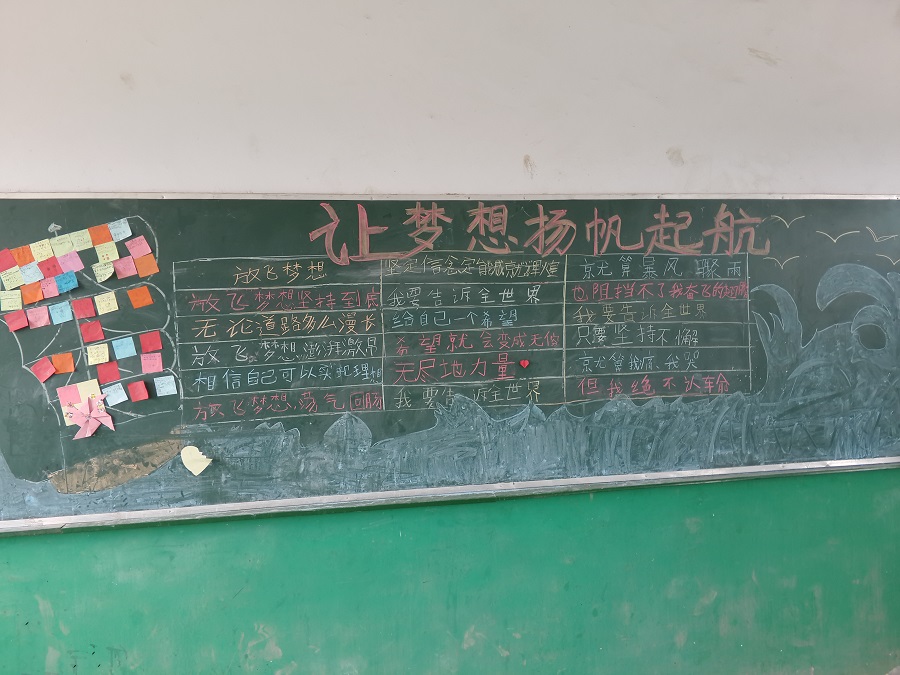 让梦想扬帆起航
放飞梦想
放飞梦想坚持到底
无论道路多么漫长
放飞梦想澎湃激昂
相信自己可以实把理想
放飞梦想荡气回肠
坚定信念定能成就光辉煌
我要告诉全世界
给自己一个希望
希望就会变成无便
无尽地力量
我要告诉全世界
京尤算暴风聚雨
也阻挡不了我奋飞的翅膀
我要告诉全世界
只要坚持不懈
京尤算我麻我哭
但我绝不认输